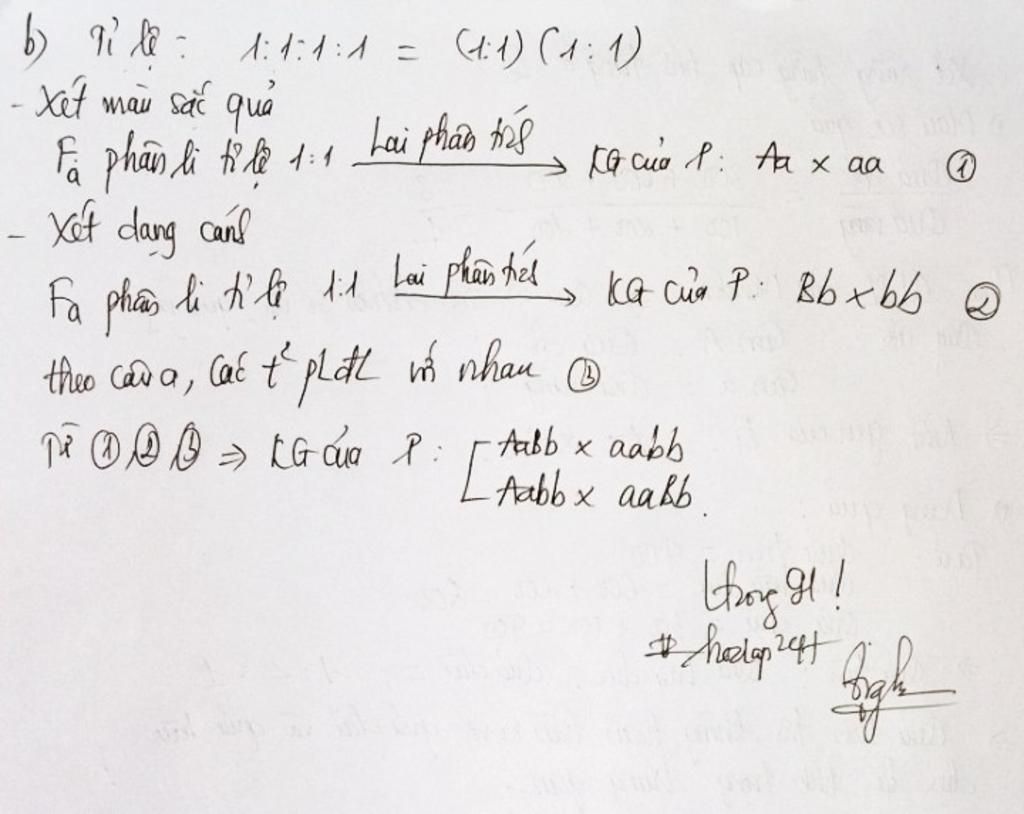 b) Tỉ lệ: 1:1:1:1 = (1:1)(1:1)
- Xét màu sắc quả
Fa phân li tỉ lệ 1:1 Lai phân tích → KG của P: Aa x aa ①
- Xét dạng
Fa phân li tỉ lệ 1:1 Lai phân tích → KG của P: Bb x bb ②
theo câu a, các t² pLđL vs nhau ③
Từ ①, ②, ③ ⇒ KG của P: AaBb x aabb
Aabb x aaBb.